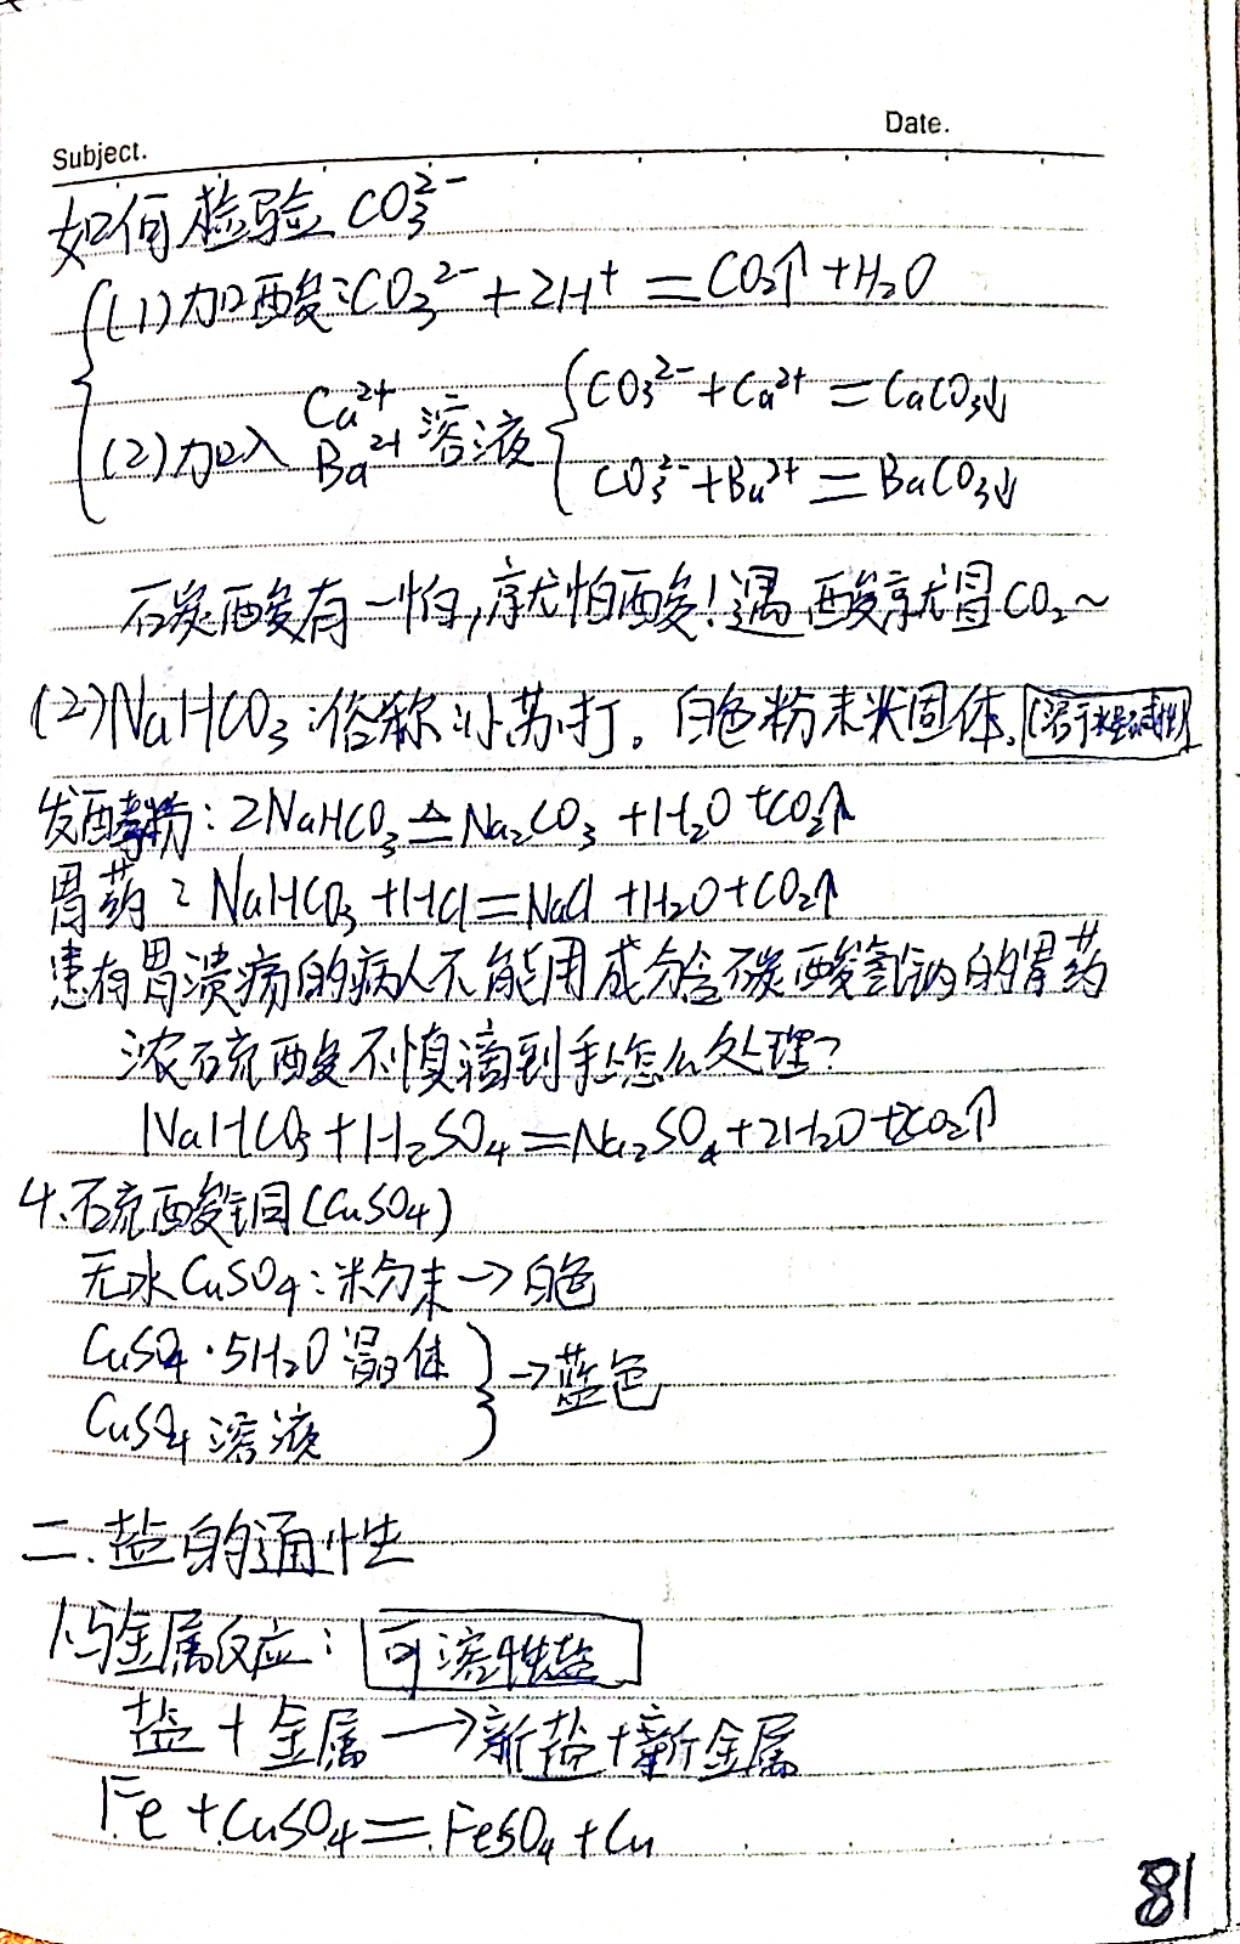 Subject.
Date.
如何检验 CO₃²⁻
(1)加酸:CO₃²⁻+2H⁺=CO₂↑+H₂O
(2)加入 Ca²⁺ Ba²⁺ 溶液
CO₃²⁻+Ca²⁺=CaCO₃↓
CO₃²⁻+Ba²⁺=BaCO₃↓
碳酸有一怕,就怕酸!遇酸就冒CO₂~
(2)NaHCO₃:俗称小苏打。白色粉末状固体.(溶于水呈碱性)
发酵粉:2NaHCO₃≜Na₂CO₃+H₂O+CO₂↑
胃药:NaHCO₃+HCl=NaCl+H₂O+CO₂↑
患有胃溃疡的病人不能用成分含碳酸氢钠的胃药
浓硫酸不慎滴到手上怎么处理?
NaHCO₃+H₂SO₄=Na₂SO₄+2H₂O+2CO₂↑
4.硫酸铜(CuSO₄)
无水CuSO₄:粉末→白色
CuSO₄·5H₂O晶体
CuSO₄溶液
→蓝色
二.盐的通性
1.与金属反应:可溶性盐
盐+金属→新盐+新金属
Fe+CuSO₄=FeSO₄+Cu
81